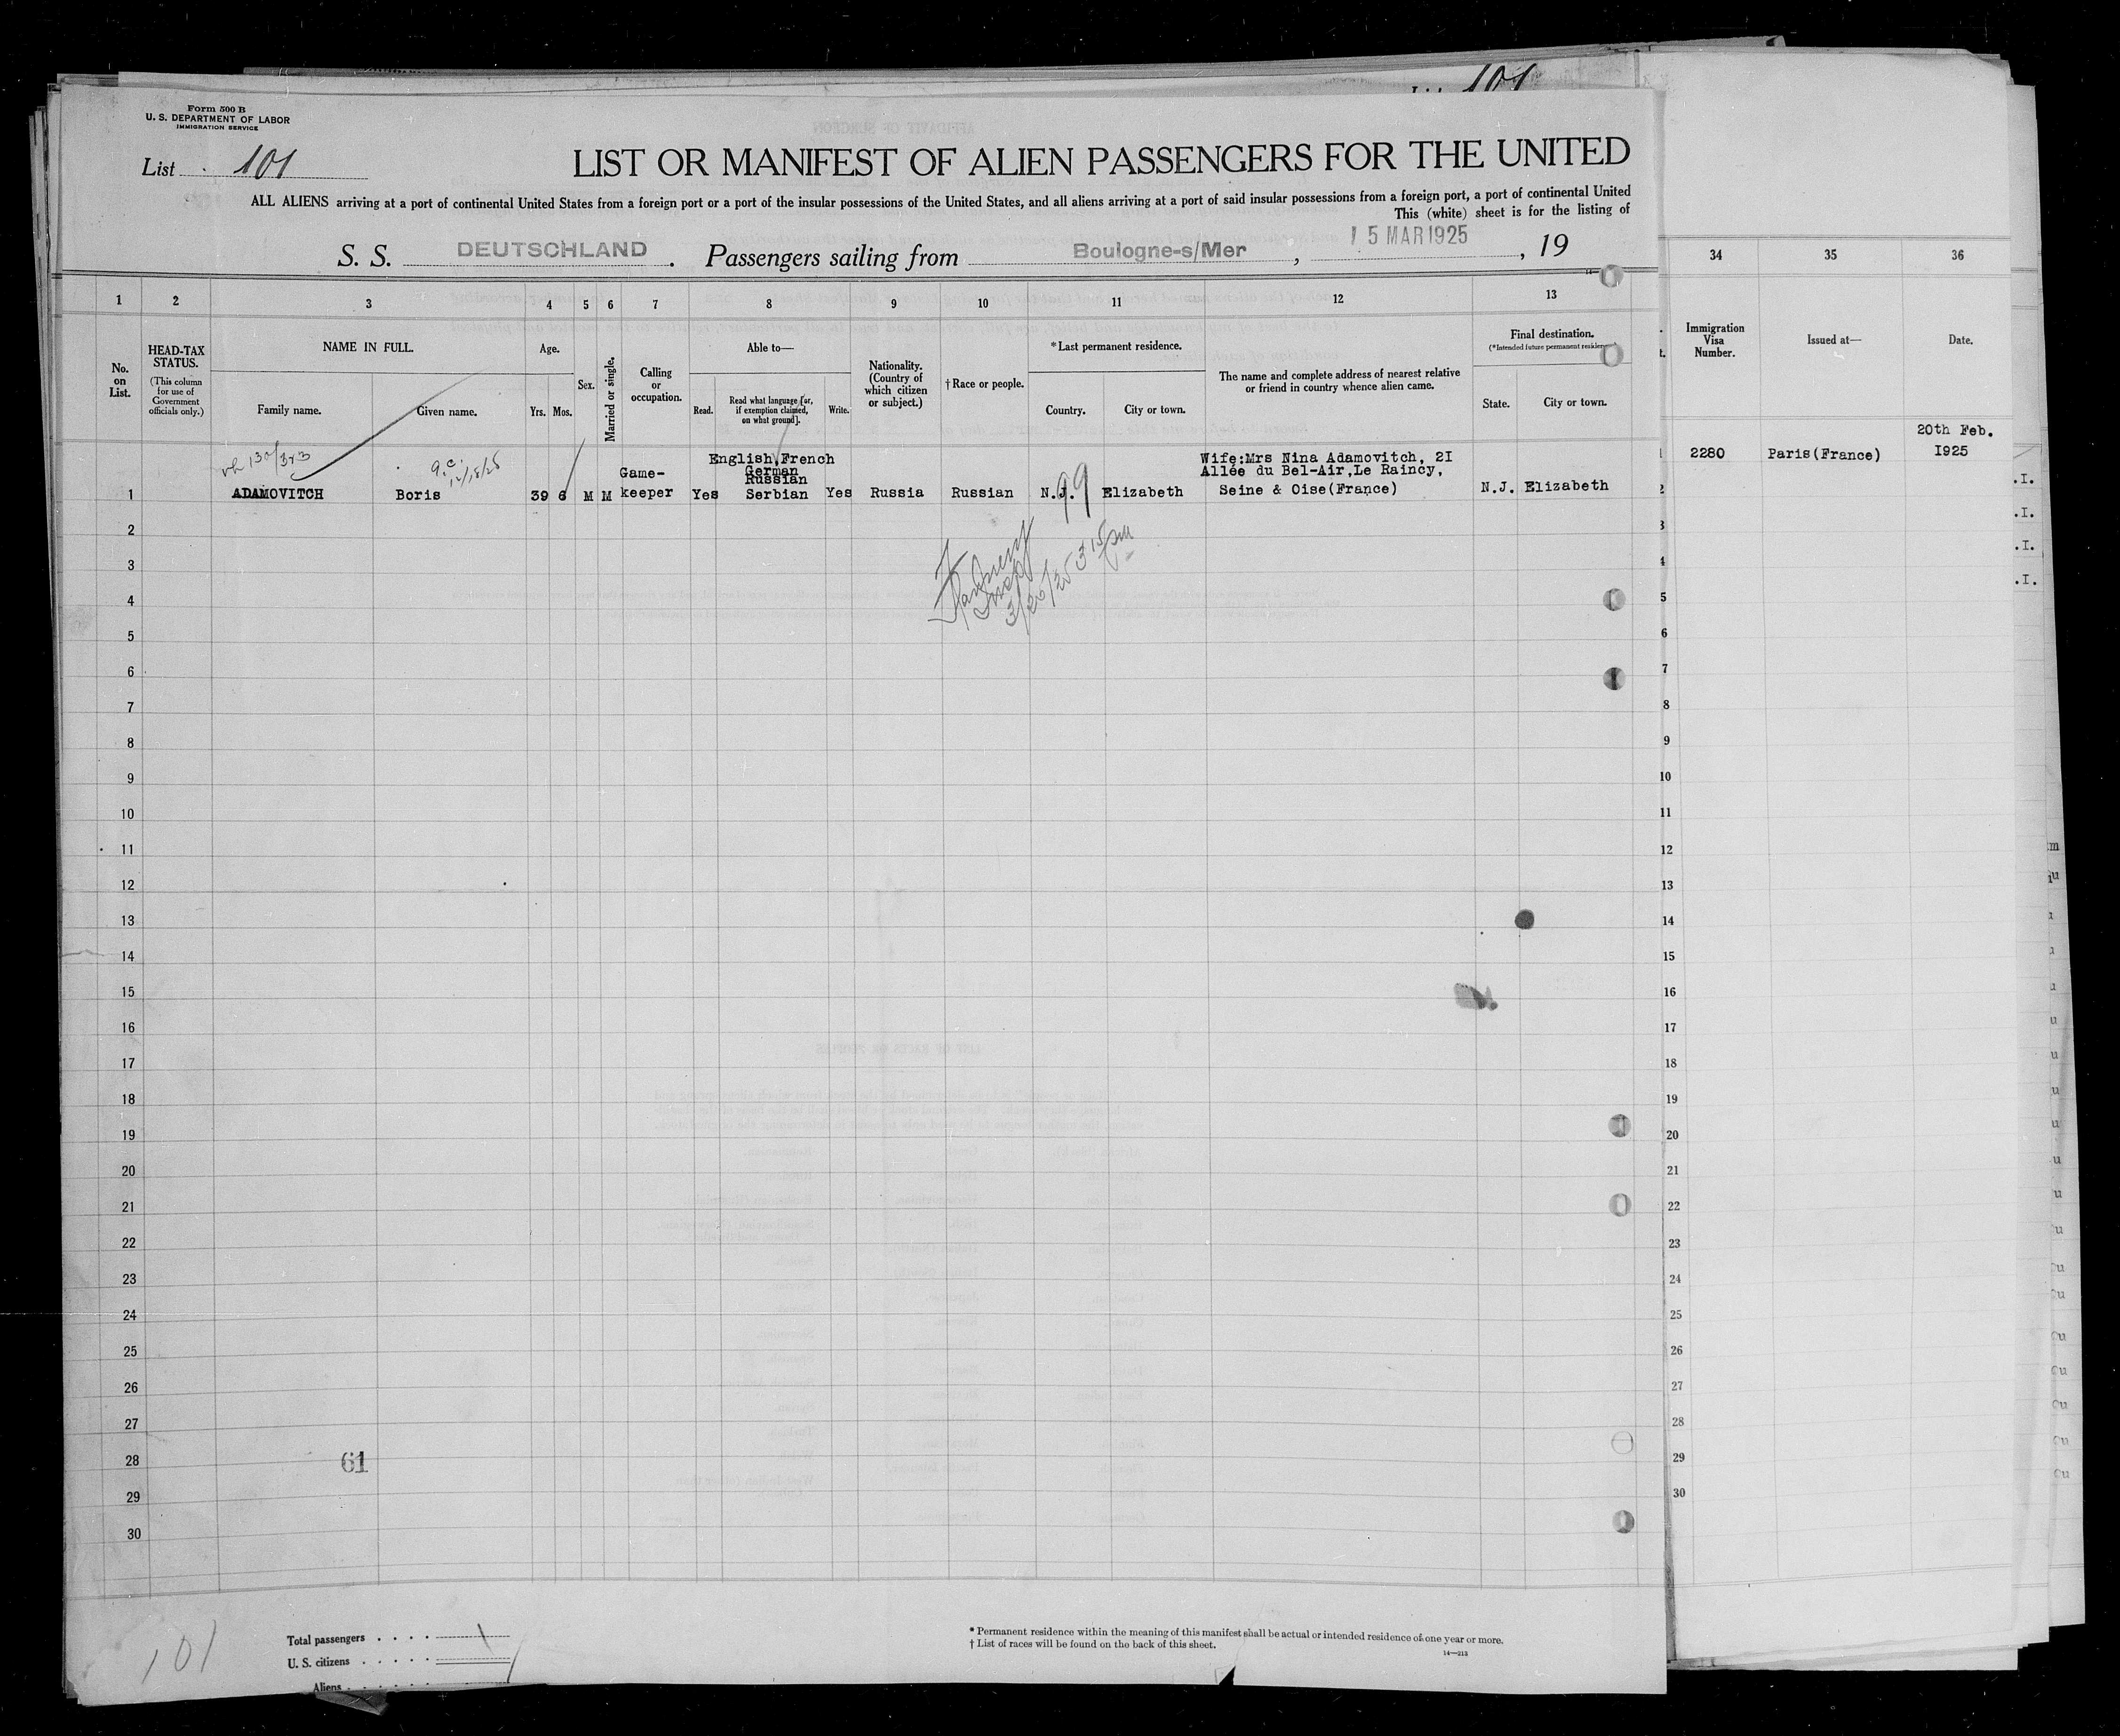 101
Form 500 B
U. S. DEPARTMENT OF LABOR
IMMIGRATION SERVICE
List 101
LIST OR MANIFEST OF ALIEN PASSENGERS FOR THE UNITED
ALL ALIENS arriving at a port of continental United States from a foreign port or a port of the insular possessions of the United States, and all aliens arriving at a port of said insular possessions from a foreign port, a port of continental United
This (white) sheet is for the listing of
S. S. DEUTSCHLAND. Passengers sailing from Boulogne-s/Mer, 15 MAR 1925, 19
1 2 3 4 5 6 7 8 9 10 11 12 13
34 35 36
No. on List.
HEAD-TAX STATUS.
(This column for use of Government officials only.)
NAME IN FULL.
Family name.
Given name.
Age.
Yrs. Mos.
Sex.
Married or single.
Calling or occupation.
Able to—
Read.
Read what language [or, if exemption claimed, on what ground].
Write.
Nationality. (Country of which citizen or subject.)
† Race or people.
*Last permanent residence.
Country.
City or town.
The name and complete address of nearest relative or friend in country whence alien came.
Final destination.
(*Intended future permanent residence)
State.
City or town.
Immigration Visa Number.
Issued at—
Date.
1 ADAMOVITCH Boris 39 6 M M Game-keeper Yes English,French German Russian Serbian Yes Russia Russian N.J. Elizabeth
Wife:Mrs Nina Adamovitch, 2I
Allée du Bel-Air,Le Raincy,
Seine & Oise(France)
N.J. Elizabeth
2280 Paris(France) 20th Feb. I925
99
3/26/25 3 15 pm
2
3
4
5
6
7
8
9
10
11
12
13
14
15
16
17
18
19
20
21
22
23
24
25
26
27
28
61
29
30
101
Total passengers
U. S. citizens
Aliens
* Permanent residence within the meaning of this manifest shall be actual or intended residence of one year or more.
† List of races will be found on the back of this sheet.
14—213